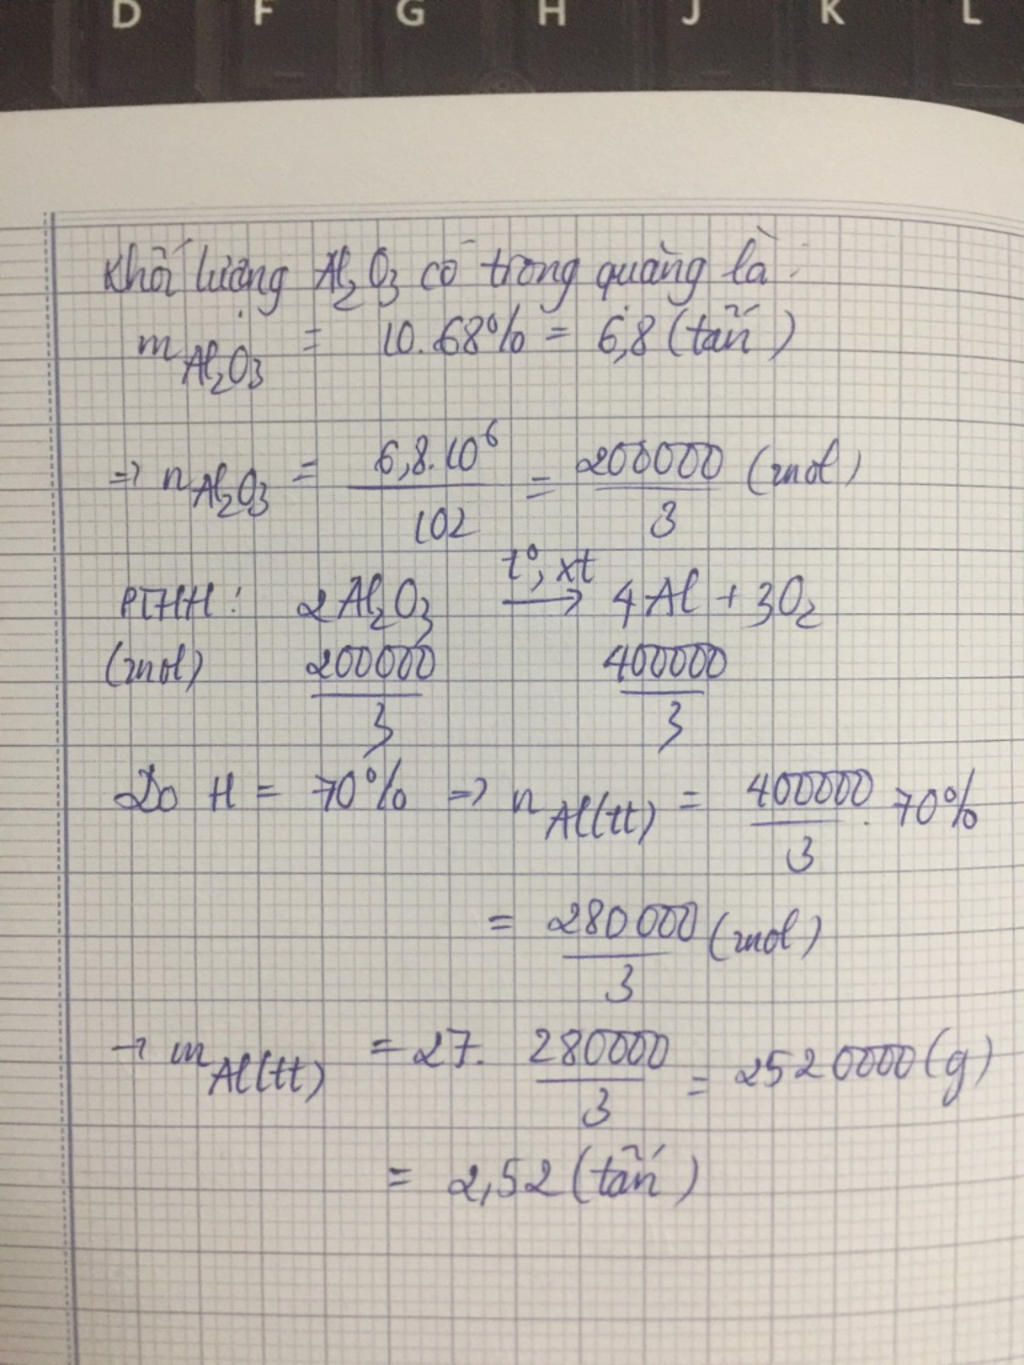 D F G H J K L
Khối lượng Al₂O₃ có trong quặng là:
m Al₂O₃ = 10.68% = 6,8 (tấn)
=> n Al₂O₃ = 6,8.10⁶ / 102 = 200000 / 3 (mol)
PTHH: 2Al₂O₃ t°, xt → 4Al + 3O₂
(mol) 200000 / 3 400000 / 3
Do H = 70% => n Al(tt) = 400000 / 3 . 70%
= 280000 / 3 (mol)
→ m Al(tt) = 27. 280000 / 3 = 2520000 (g)
= 2,52 (tấn)